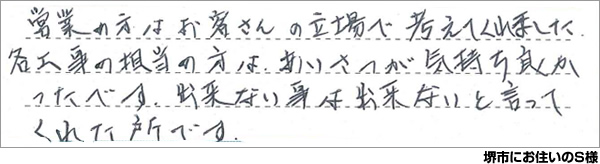 営業の方はお客さんの立場で考えてくれました.
各工事の担当の方は、あいさつが気持ち良かっ
たです. 出来ない事は出来ないと言って
くれた所です.
堺市にお住いのS様